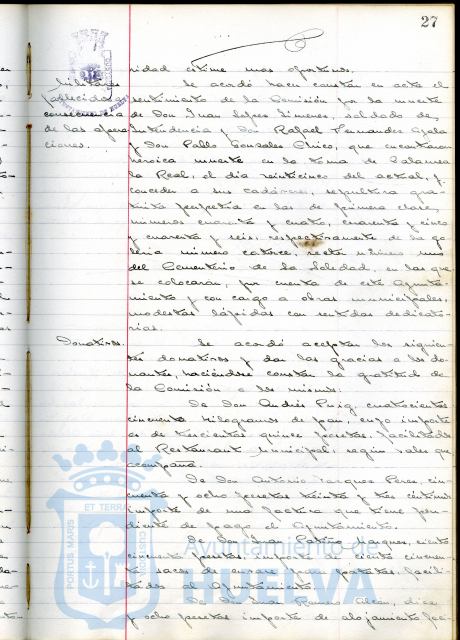 27
ridad estime mas oportunos.
Militares
fallecidos a
consecuencia
de las opera
ciones.
Se acordó hacer constar en acta el
sentimiento de la Comisión por la muerte
de Don Juan Lopez Jimenez, soldado de
Intendencia y Don Rafael Fernandez Ayala
y Don Pablo Gonzalez Chico, que encontraron
heroica muerte en la toma de Zalamea
la Real, el día veinticinco del actual, y
conceder a sus cadáveres, sepultura gra-
tuita perpetua en las de primera clase,
números cuarenta y cuatro, cuarenta y cinco
y cuarenta y seis, respectivamente de la ga-
lería número catorce, recto número uno
del Cementerio de la Soledad, en las que
se colocarán, por cuenta de este Ayunta-
miento y con cargo a obras municipales,
modestas lápidas con sentidas dedicato-
rias.
Donativos.
Se acordó aceptar los siguien-
tes donativos y dar las gracias a los do-
nantes, haciéndose constar la gratitud de
la Comisión a los mismos:
De Don Andrés Puig, cuatrocientos
cincuenta kilogramos de pan, cuyo importe
es de trescientas quince pesetas, facilitados
al Restaurant Municipal según vales que
acompaña.
De Don Antonio Vazquez Perez, cin-
cuenta y ocho pesetas treinta y tres céntimos
importe de una factura que tiene pen-
diente de pago el Ayuntamiento.
De Don Juan Patiño Marquez, ciento
cincuenta pesetas importe de ciento cincuen-
ta sacos de envase para patatas, facili-
tados al Ayuntamiento.
De Don Romero diez
y ocho pesetas importe de alojamiento
PORTUS MARIS ET TERRAE CUSTODIA
Ayuntamiento de
HUELVA